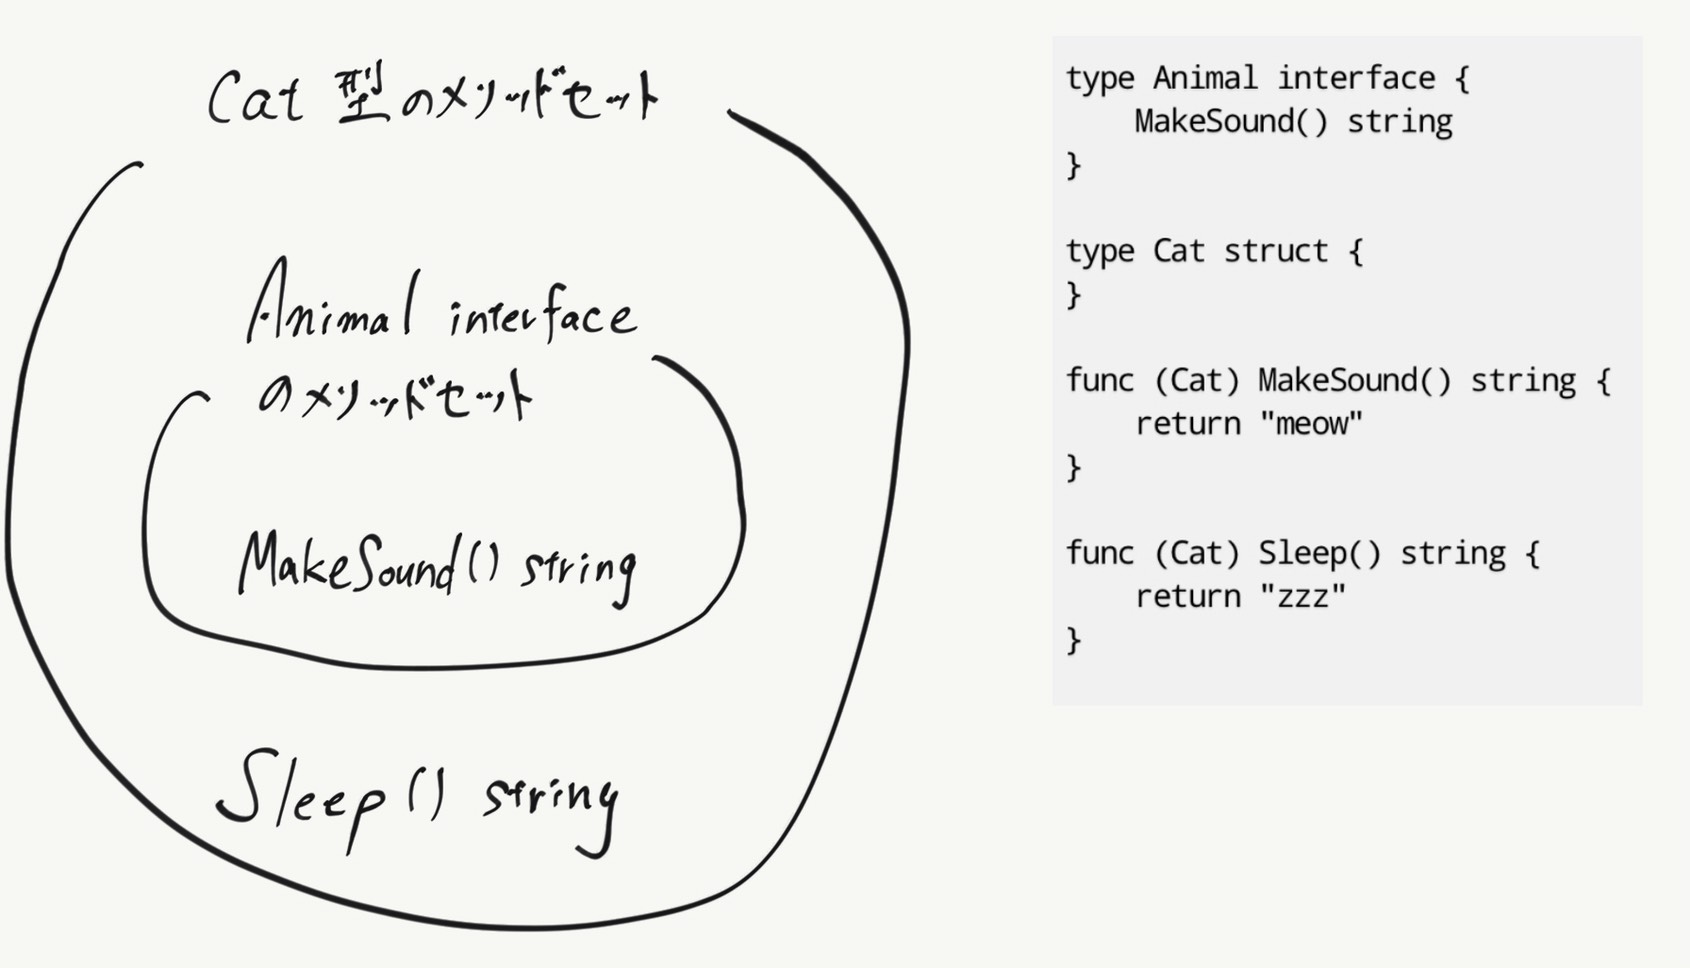 Cat 型のメソッドセット
Animal interface
のメソッドセット
MakeSound() string
Sleep() string
type Animal interface {
    MakeSound() string
}

type Cat struct {
}

func (Cat) MakeSound() string {
    return "meow"
}

func (Cat) Sleep() string {
    return "zzz"
}